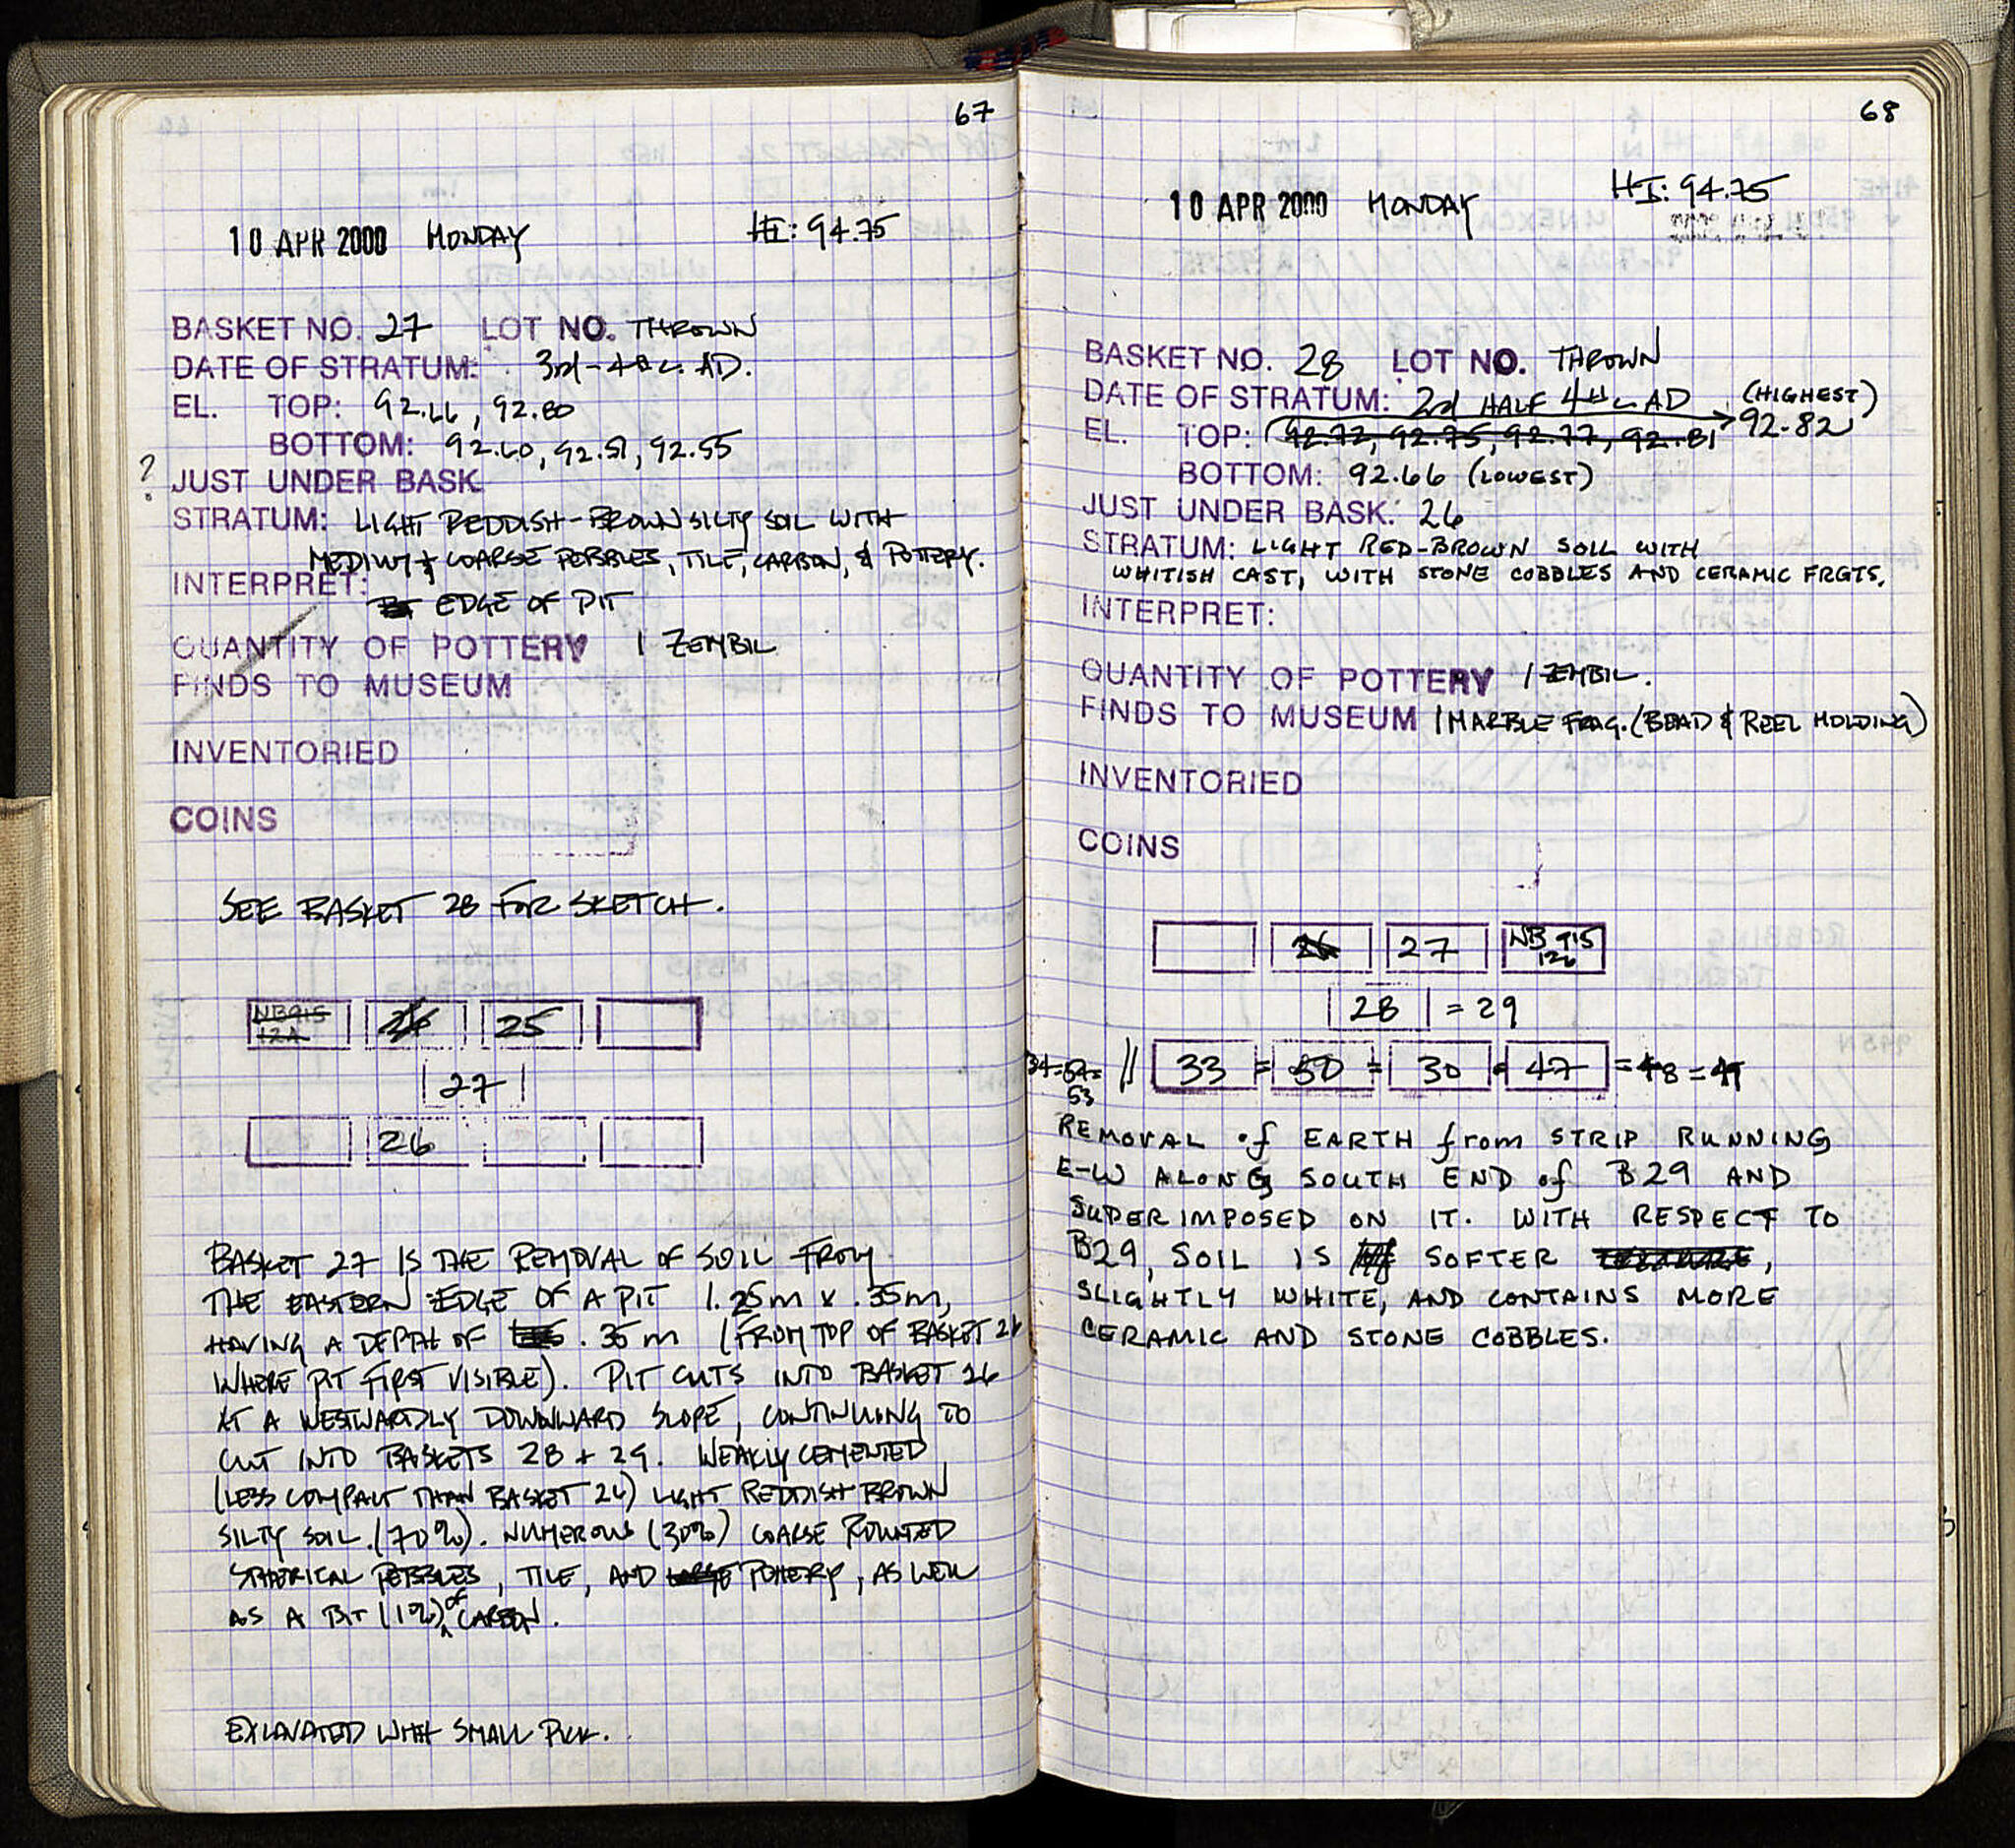 67
10 APR 2000 MONDAY HI: 94.75
BASKET NO. 27 LOT NO. THROWN
DATE OF STRATUM: 3rd-4th c. AD.
EL. TOP: 92.66, 92.80
BOTTOM: 92.60, 92.51, 92.55
? JUST UNDER BASK.
STRATUM: LIGHT REDDISH-BROWN SILTY SOIL WITH
MEDIUM & COARSE PEBBLES, TILE, CARBON, & POTTERY.
INTERPRET:
EDGE OF PIT
QUANTITY OF POTTERY 1 ZEMBIL
FINDS TO MUSEUM
INVENTORIED
COINS
SEE BASKET 28 FOR SKETCH.
NB915 25
12A
27
26
BASKET 27 IS THE REMOVAL OF SOIL FROM
THE EASTERN EDGE OF A PIT 1.25m x .35m,
HAVING A DEPTH OF .35m (FROM TOP OF BASKET 26
WHERE PIT FIRST VISIBLE). PIT CUTS INTO BASKET 26
AT A WESTWARDLY DOWNWARD SLOPE, CONTINUING TO
CUT INTO BASKETS 28 + 29. WEAKLY CEMENTED
(LESS COMPACT THAN BASKET 26) LIGHT REDDISH BROWN
SILTY SOIL. (70%). NUMEROUS (30%) COARSE ROUNDED
SPHERICAL PEBBLES, TILE, AND LARGE POTTERY, AS WELL
AS A BIT (1%) OF CARBON.
EXCAVATED WITH SMALL PICK.
68
10 APR 2000 MONDAY HI: 94.75
BASKET NO. 28 LOT NO. THROWN
DATE OF STRATUM: 2nd HALF 4th c AD (HIGHEST)
EL. TOP: 92.72, 92.75, 92.77, 92.81 92.82
BOTTOM: 92.66 (LOWEST)
JUST UNDER BASK. 26
STRATUM: LIGHT RED-BROWN SOIL WITH
WHITISH CAST, WITH STONE COBBLES AND CERAMIC FRGTS.
INTERPRET:
QUANTITY OF POTTERY 1 ZEMBIL.
FINDS TO MUSEUM 1 MARBLE FRAG. (BEAD & REEL MOLDING)
INVENTORIED
COINS
26 27 NB 915
126
28 = 29
// 33 = 50 = 30 = 47 = 48
53
REMOVAL of EARTH from STRIP RUNNING
E-W ALONG SOUTH END of B29 AND
SUPERIMPOSED ON IT. WITH RESPECT TO
B29, SOIL IS SOFTER ,
SLIGHTLY WHITE, AND CONTAINS MORE
CERAMIC AND STONE COBBLES.